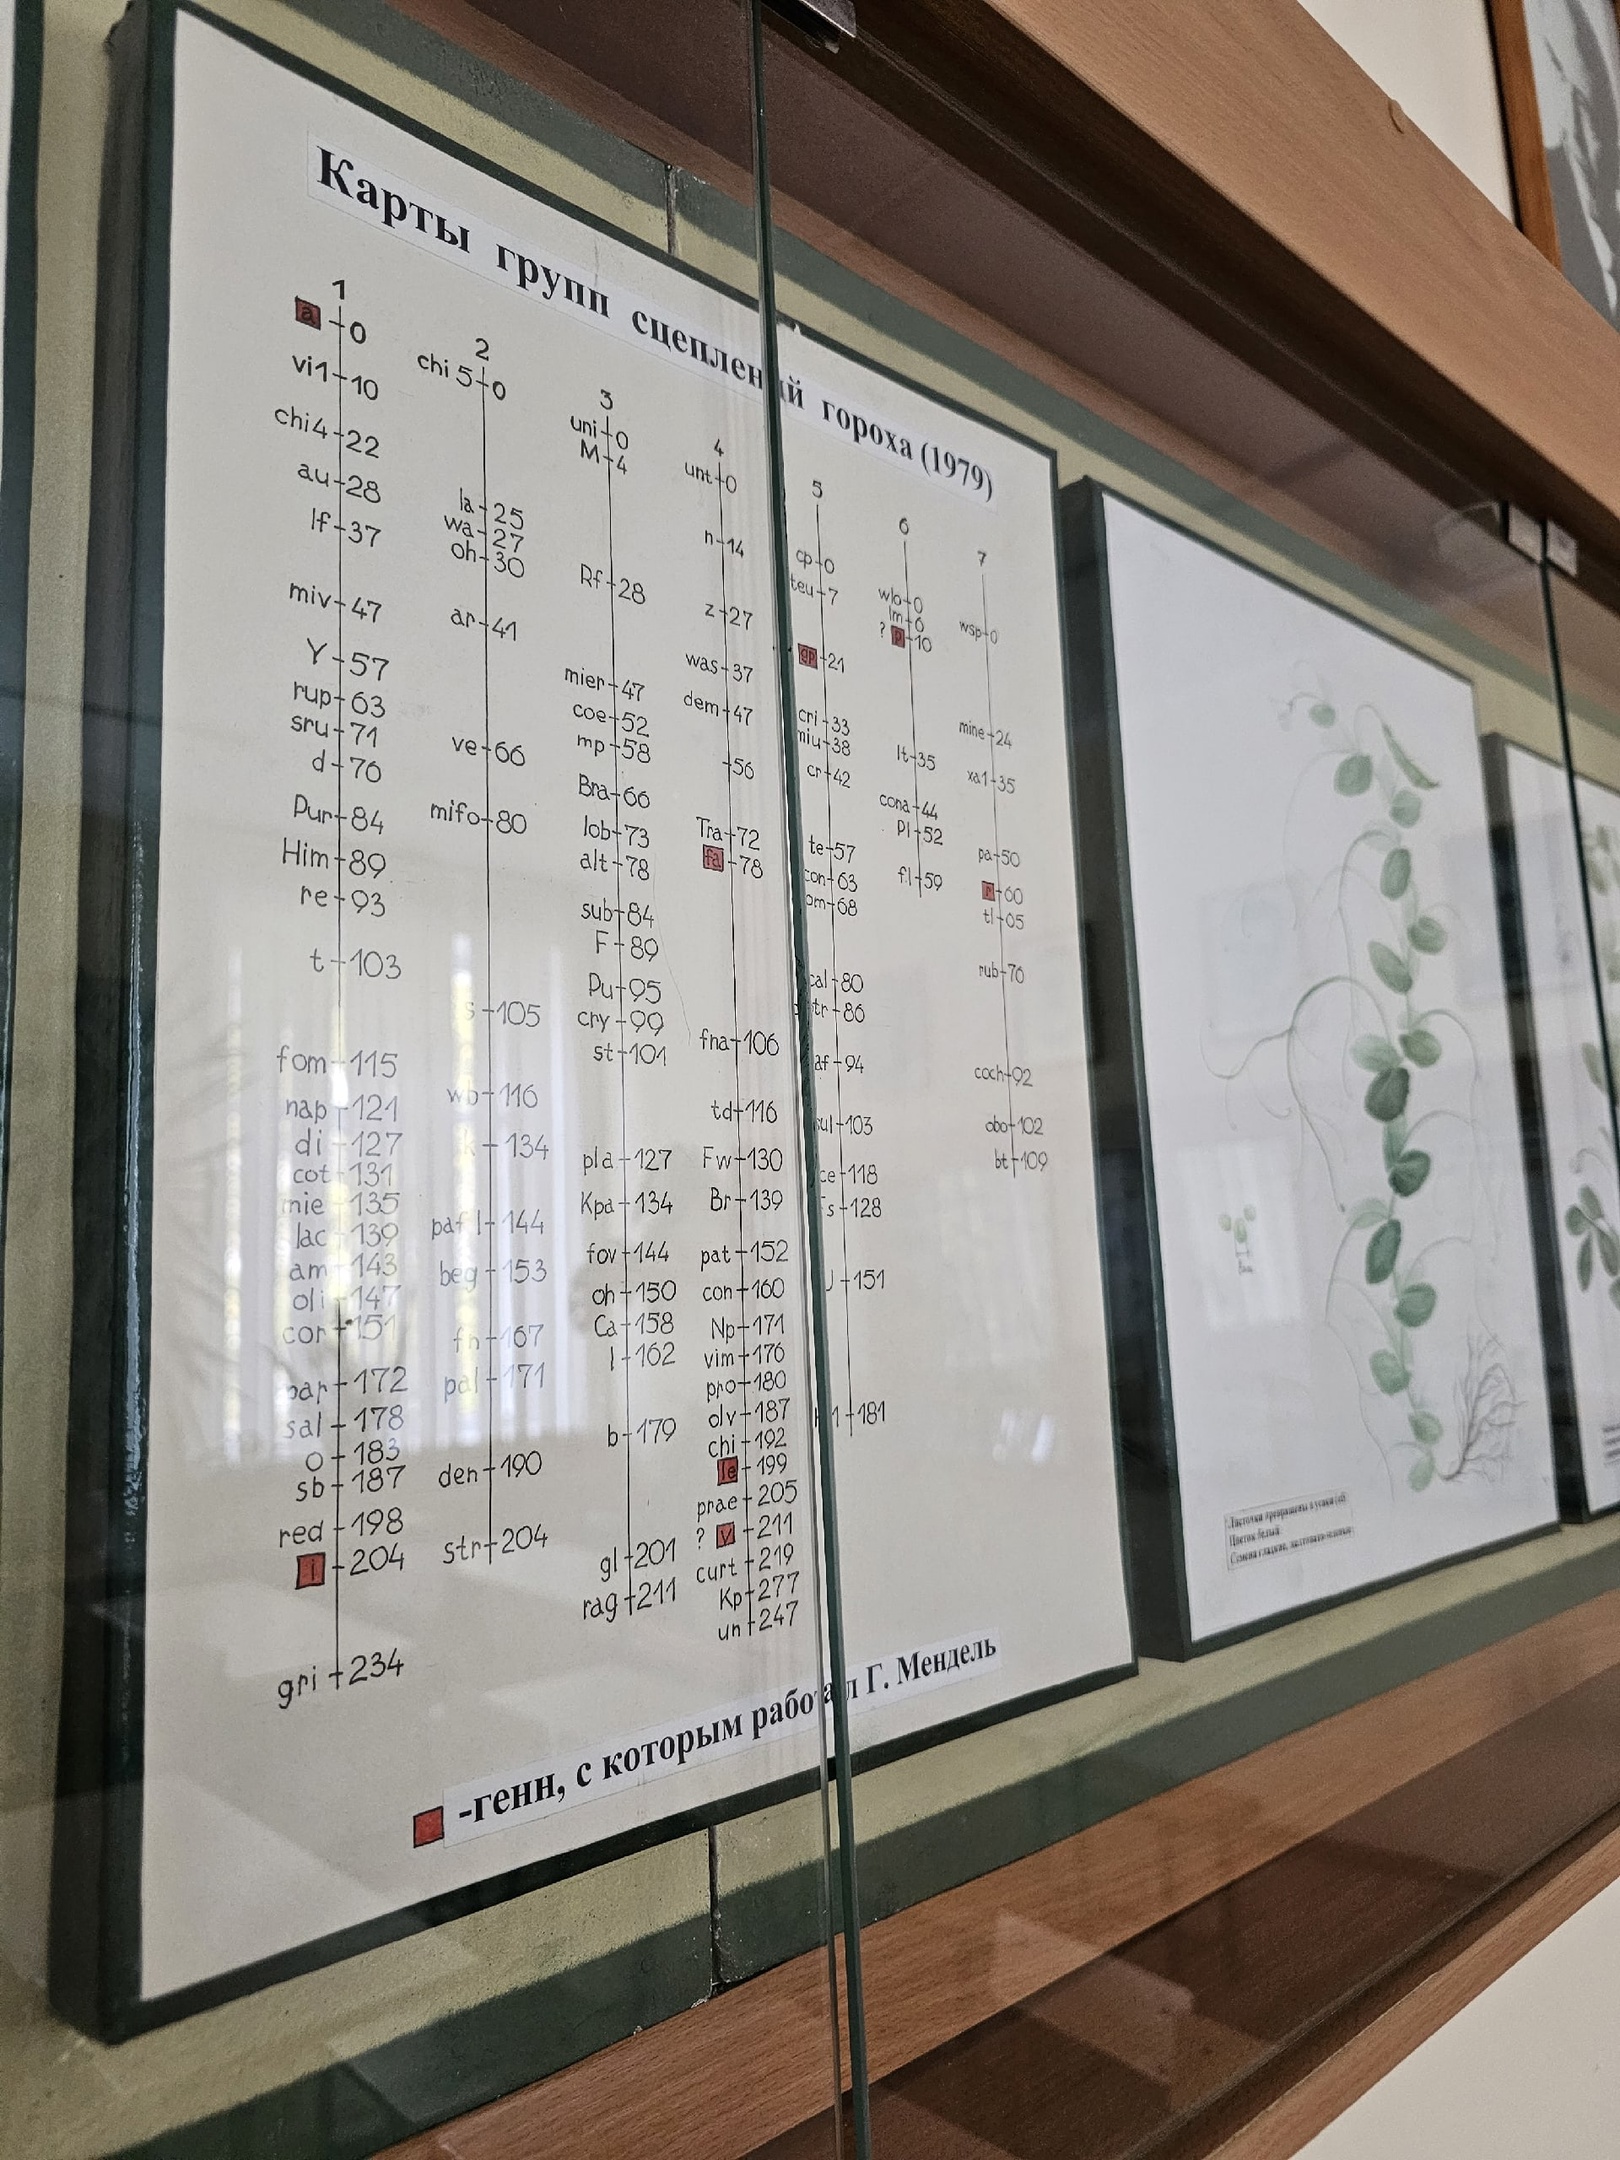 Карты групп сцеплений гороха (1979)
1
a 0
vi1 10
chi4 22
au 28
lf 37
miv 47
Y 57
rup 63
sru 71
d 76
Pur 84
Him 89
re 93
t 103
fom 115
nap 121
di 127
cot 131
mie 135
lac 139
am 143
oli 147
cor 151
par 172
sal 178
o 183
sb 187
red 198
i 204
gri 234
2
chi 5 0
la 25
wa 27
oh 30
ar 41
ve 66
mifo 80
s 105
wb 116
k 134
pafl 144
beg 153
fn 167
pal 171
den 190
str 204
3
uni 0
M 4
Rf 28
mier 47
coe 52
mp 58
Bra 66
lob 73
alt 78
sub 84
F 89
Pu 95
cry 99
st 101
pla 127
Kpa 134
fov 144
oh 150
Ca 158
l 162
b 179
gl 201
rag 211
4
unt 0
n 14
z 27
was 37
dem 47
56
Tra 72
fa 78
fna 106
td 116
Fw 130
Br 139
pat 152
con 160
Np 171
vim 176
pro 180
olv 187
chi 192
le 199
prae 205
? v 211
curt 219
Kp 277
un 247
5
cp 0
teu 7
gp 21
cri 33
miu 38
cr 42
te 57
con 63
om 68
cal 80
tr 86
af 94
sul 103
ce 118
s 128
U 151
181
6
wlo 0
lm 6
? p 10
lt 35
cona 44
Pl 52
fl 59
7
wsp 0
mine 24
xa1 35
pa 50
r 60
tl 65
rub 76
coch 92
obo 102
bt 109
-генн, с которым работал Г. Мендель
Листочки превращены в усики (af)
Цветок белый
Семена гладкие, желтовато-зеленые